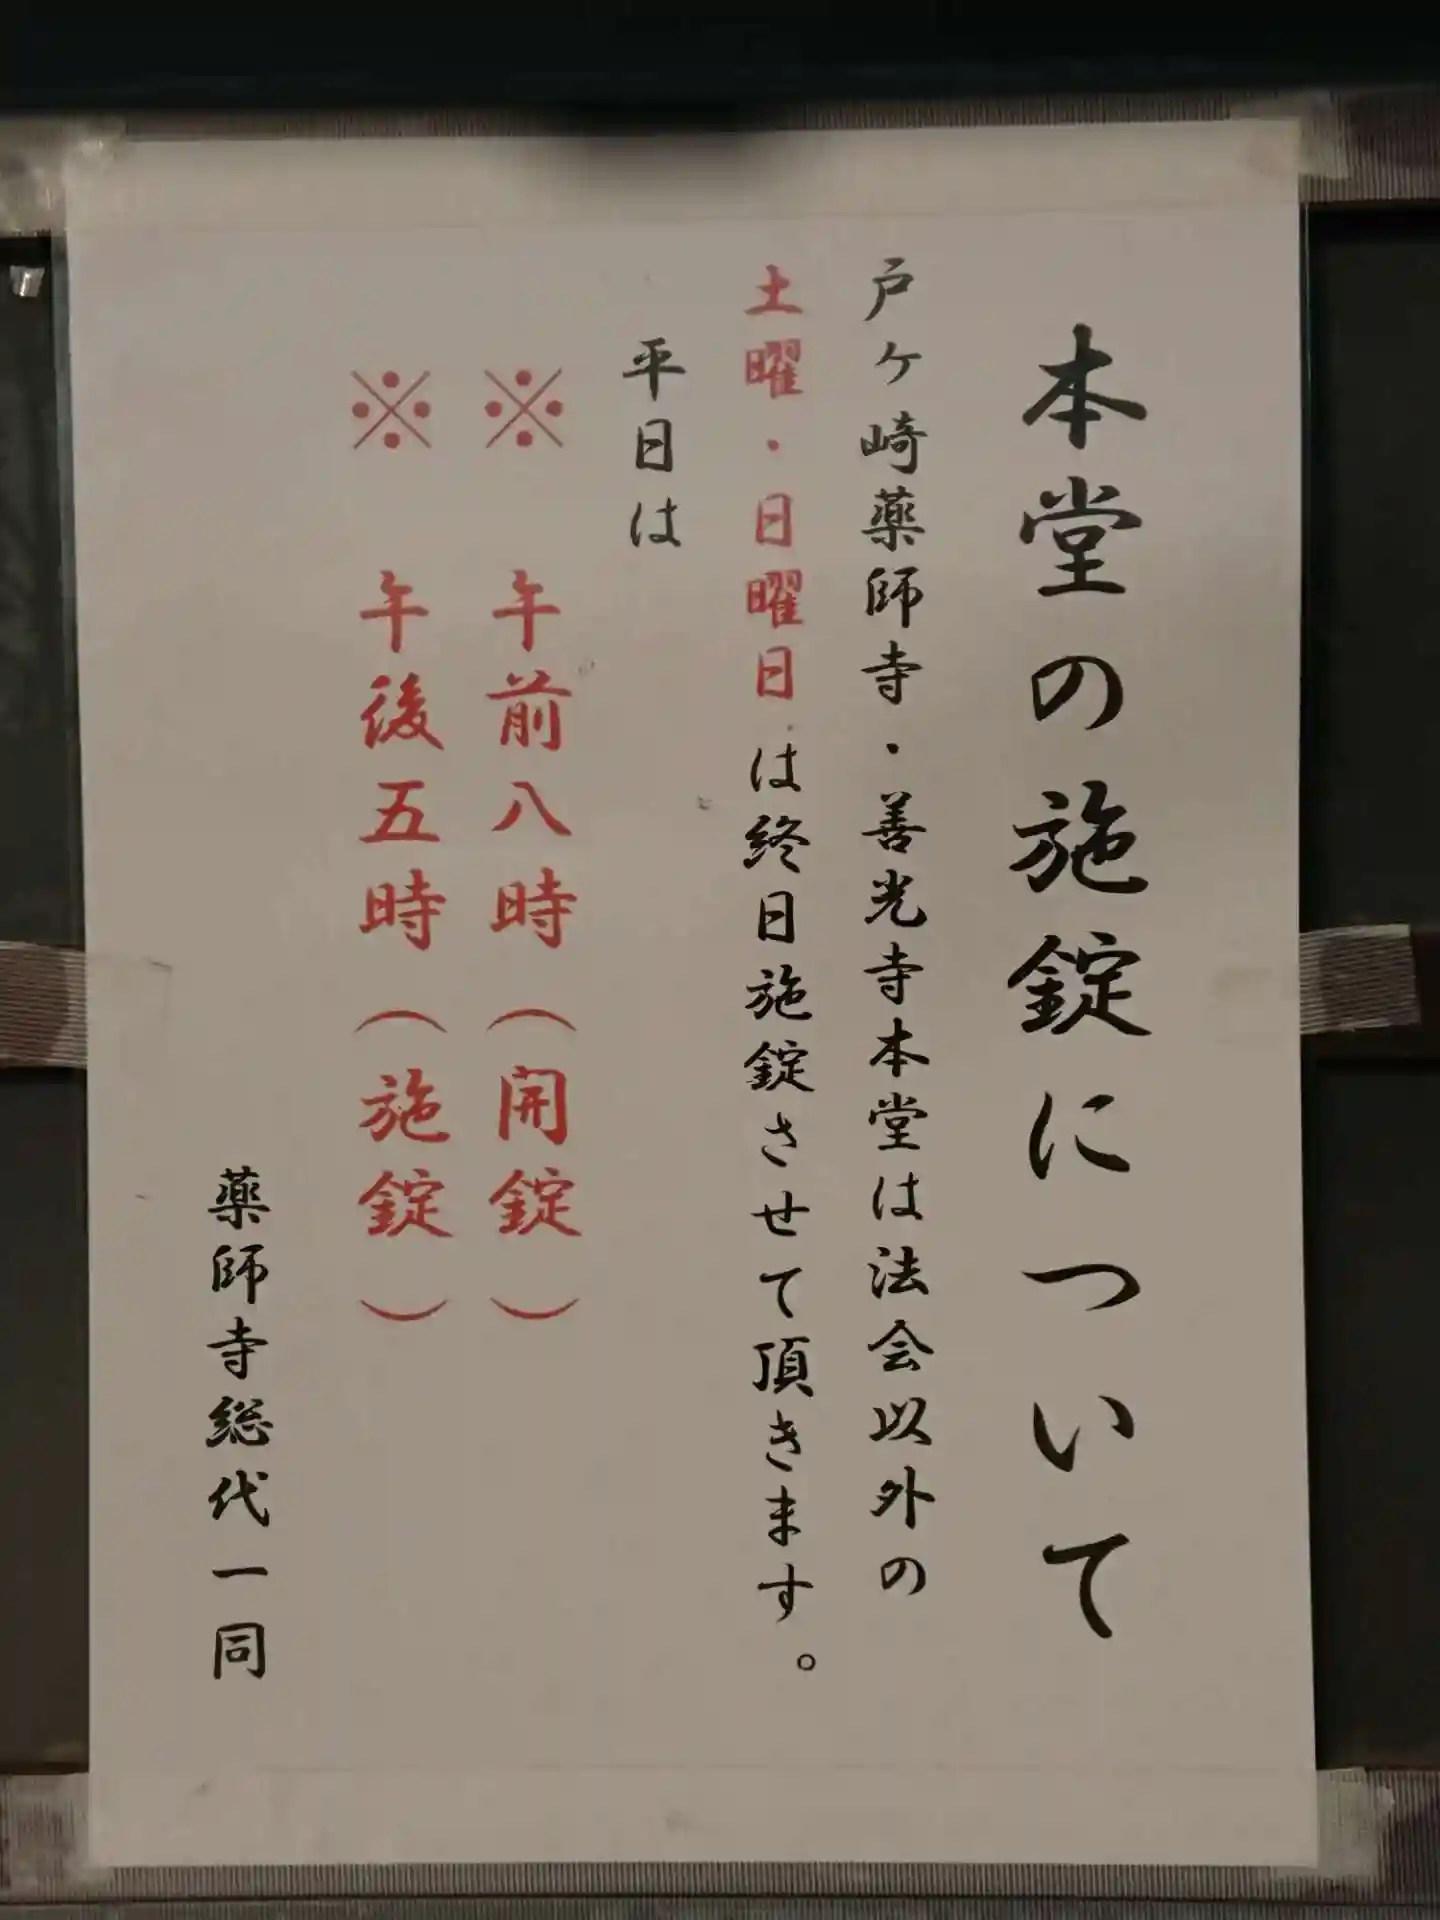 本堂の施錠について
戸ヶ崎薬師寺・善光寺本堂は法会以外の
土曜・日曜日は終日施錠させて頂きます。
平日は
※ 午前八時（開錠）
※ 午後五時（施錠）
薬師寺総代一同